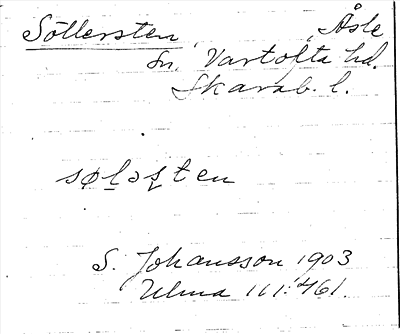 Söllersten, Åsle
sn, Vartofta hd.
Skarab. l.
søləʂten
S. Johansson 1903
Ulma 111:461.